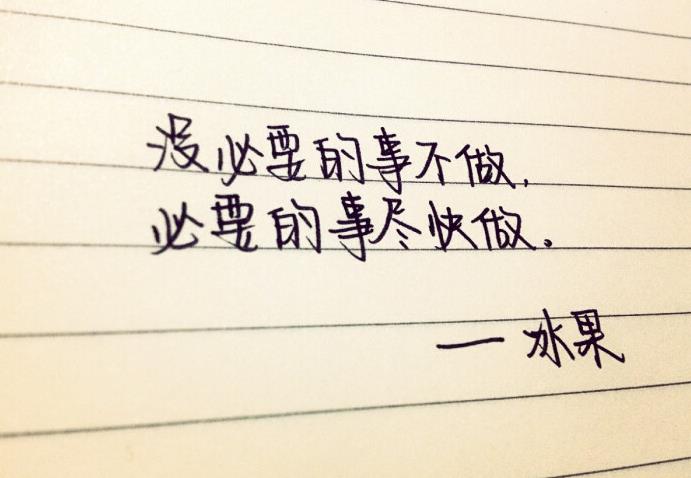 没必要的事不做.
必要的事尽快做.
— 冰果